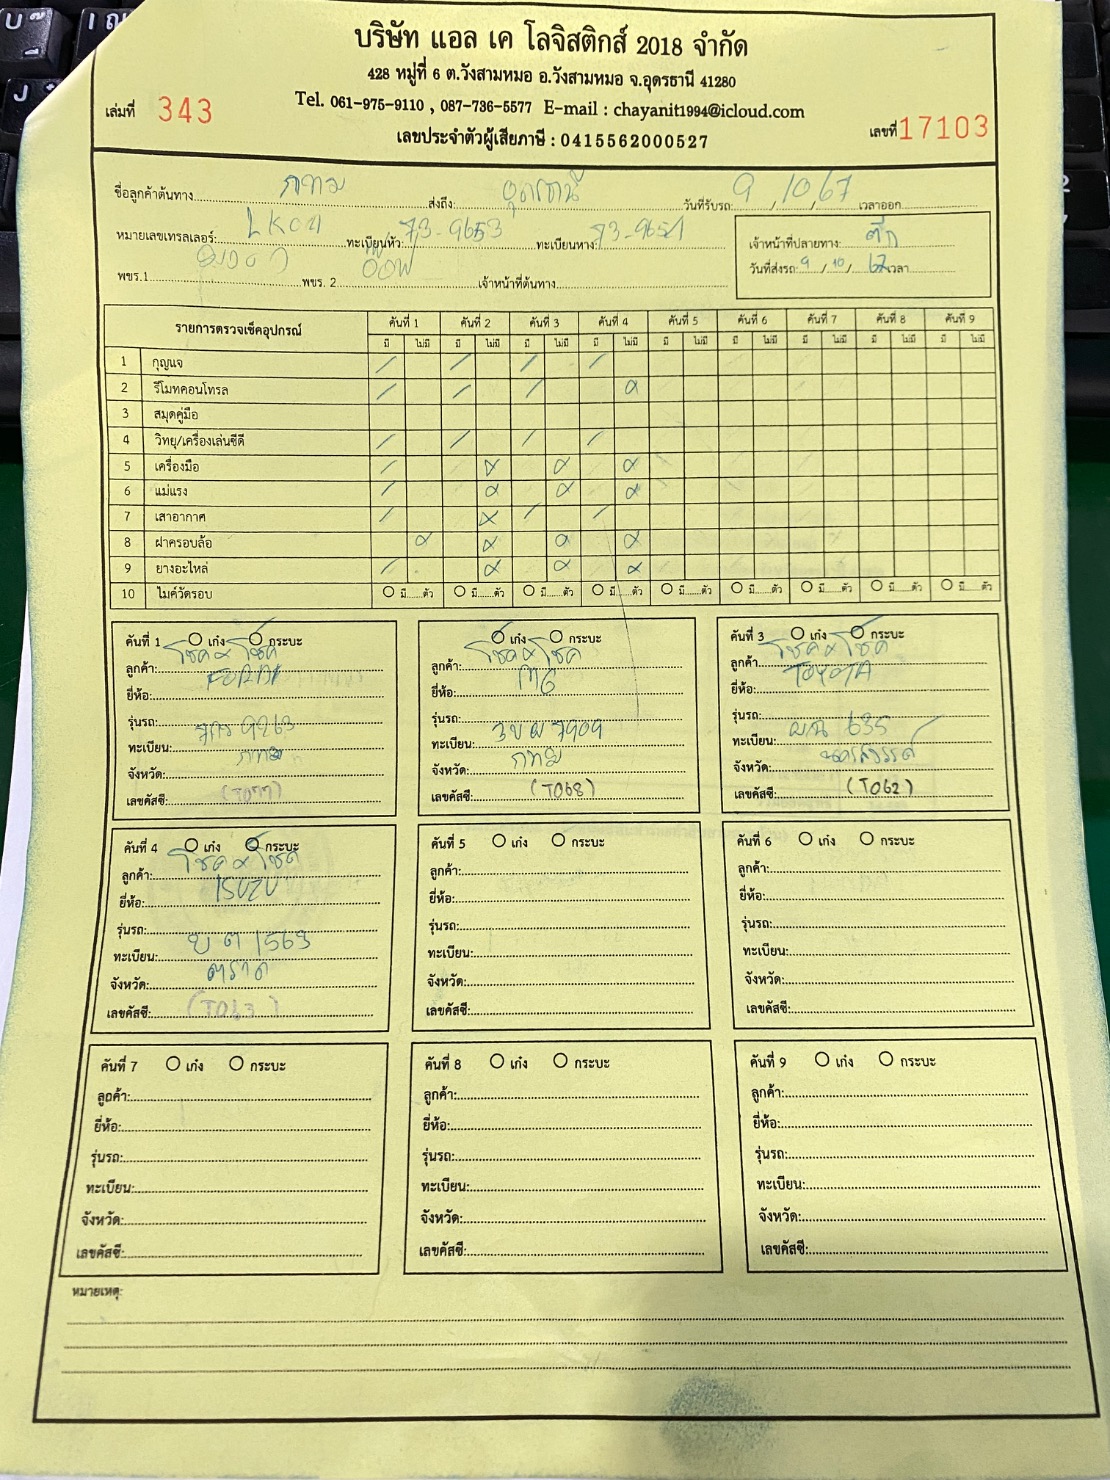 บริษัท แอล เค โลจิสติกส์ 2018 จำกัด
428 หมู่ที่ 6 ต.วังสามหมอ อ.วังสามหมอ จ.อุดรธานี 41280
Tel. 061-975-9110 , 087-736-5577 E-mail : chayanit1994@icloud.com
เลขประจำตัวผู้เสียภาษี : 0415562000527
เล่มที่ 343
เลขที่ 17103
ชื่อลูกค้าต้นทาง กทม ส่งถึง: อุดรธานี วันที่รับรถ 9/10/67 เวลาออก
หมายเลขเทรลเลอร์: ทะเบียนหัว: 73-9653 ทะเบียนหาง: 73-9654
พขร.1 พขร. 2 อ๊อฟ เจ้าหน้าที่ต้นทาง
เจ้าหน้าที่ปลายทาง: ตึก
วันที่ส่งรถ: 9/10/67 เวลา
รายการตรวจเช็คอุปกรณ์ คันที่ 1 คันที่ 2 คันที่ 3 คันที่ 4 คันที่ 5 คันที่ 6 คันที่ 7 คันที่ 8 คันที่ 9
มี ไม่มี มี ไม่มี มี ไม่มี มี ไม่มี มี ไม่มี มี ไม่มี มี ไม่มี มี ไม่มี มี ไม่มี
1 กุญแจ / / / /
2 รีโมทคอนโทรล / / / x
3 สมุดคู่มือ
4 วิทยุ/เครื่องเล่นซีดี / / / /
5 เครื่องมือ / x x x
6 แม่แรง / x x x
7 เสาอากาศ / x / /
8 ฝาครอบล้อ x x x x
9 ยางอะไหล่ / x x x
10 ไมค์วัดรอบ มี......ตัว มี......ตัว มี......ตัว มี......ตัว มี......ตัว มี......ตัว มี......ตัว มี......ตัว มี......ตัว
คันที่ 1 เก๋ง กระบะ
ลูกค้า: โชค x โชค
ยี่ห้อ:
รุ่นรถ:
ทะเบียน: 9263
จังหวัด: กทม
เลขคัสซี: (T077)
เก๋ง กระบะ
ลูกค้า: โชค x โชค
ยี่ห้อ: MG
รุ่นรถ:
ทะเบียน: 7909
จังหวัด: กทม
เลขคัสซี: (T068)
คันที่ 3 เก๋ง กระบะ
ลูกค้า: โชค x โชค
ยี่ห้อ: TOYOTA
รุ่นรถ:
ทะเบียน: 635
จังหวัด: นครสวรรค์
เลขคัสซี: (T062)
คันที่ 4 เก๋ง กระบะ
ลูกค้า: โชค x โชค
ยี่ห้อ: ISUZU
รุ่นรถ:
ทะเบียน: บต 1563
จังหวัด: ตราด
เลขคัสซี: (T063)
คันที่ 5 เก๋ง กระบะ
ลูกค้า:
ยี่ห้อ:
รุ่นรถ:
ทะเบียน:
จังหวัด:
เลขคัสซี:
คันที่ 6 เก๋ง กระบะ
ลูกค้า:
ยี่ห้อ:
รุ่นรถ:
ทะเบียน:
จังหวัด:
เลขคัสซี:
คันที่ 7 เก๋ง กระบะ
ลูกค้า:
ยี่ห้อ:
รุ่นรถ:
ทะเบียน:
จังหวัด:
เลขคัสซี:
คันที่ 8 เก๋ง กระบะ
ลูกค้า:
ยี่ห้อ:
รุ่นรถ:
ทะเบียน:
จังหวัด:
เลขคัสซี:
คันที่ 9 เก๋ง กระบะ
ลูกค้า:
ยี่ห้อ:
รุ่นรถ:
ทะเบียน:
จังหวัด:
เลขคัสซี:
หมายเหตุ: